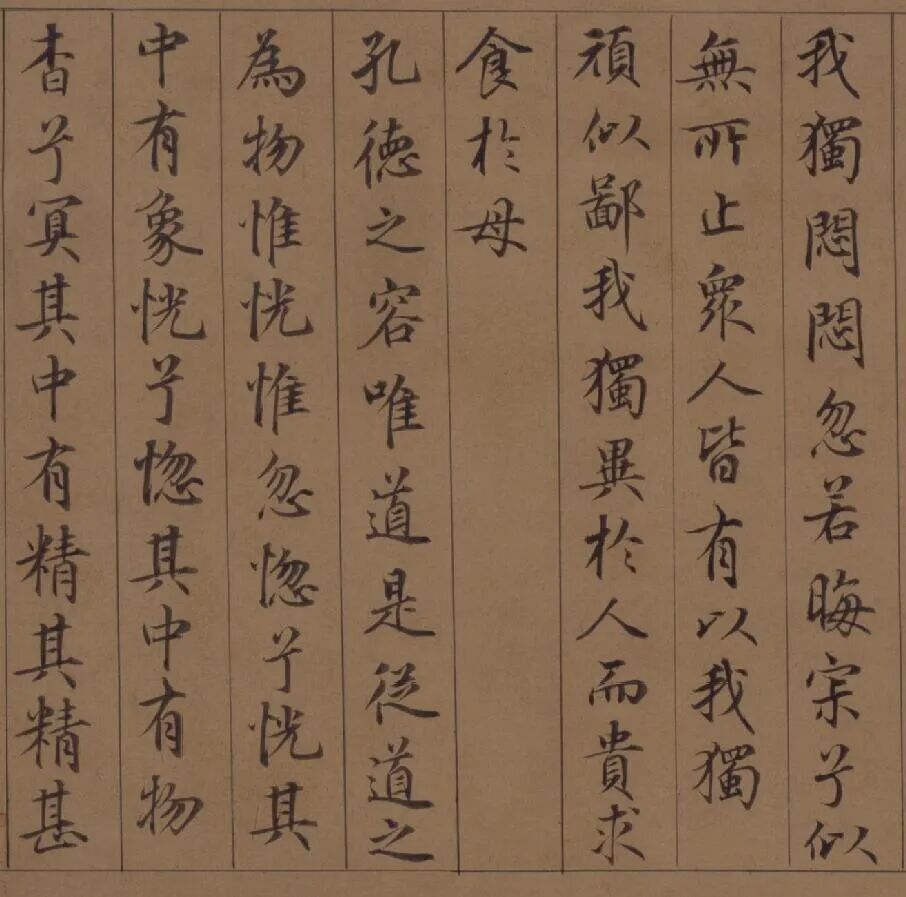 我獨悶悶忽若晦宋兮似
無所止眾人皆有以我獨
頑似鄙我獨異於人而貴求
食於母
孔德之容唯道是從道之
為物惟恍惟忽惚兮恍其
中有象恍兮惚其中有物
杳兮冥其中有精其精甚